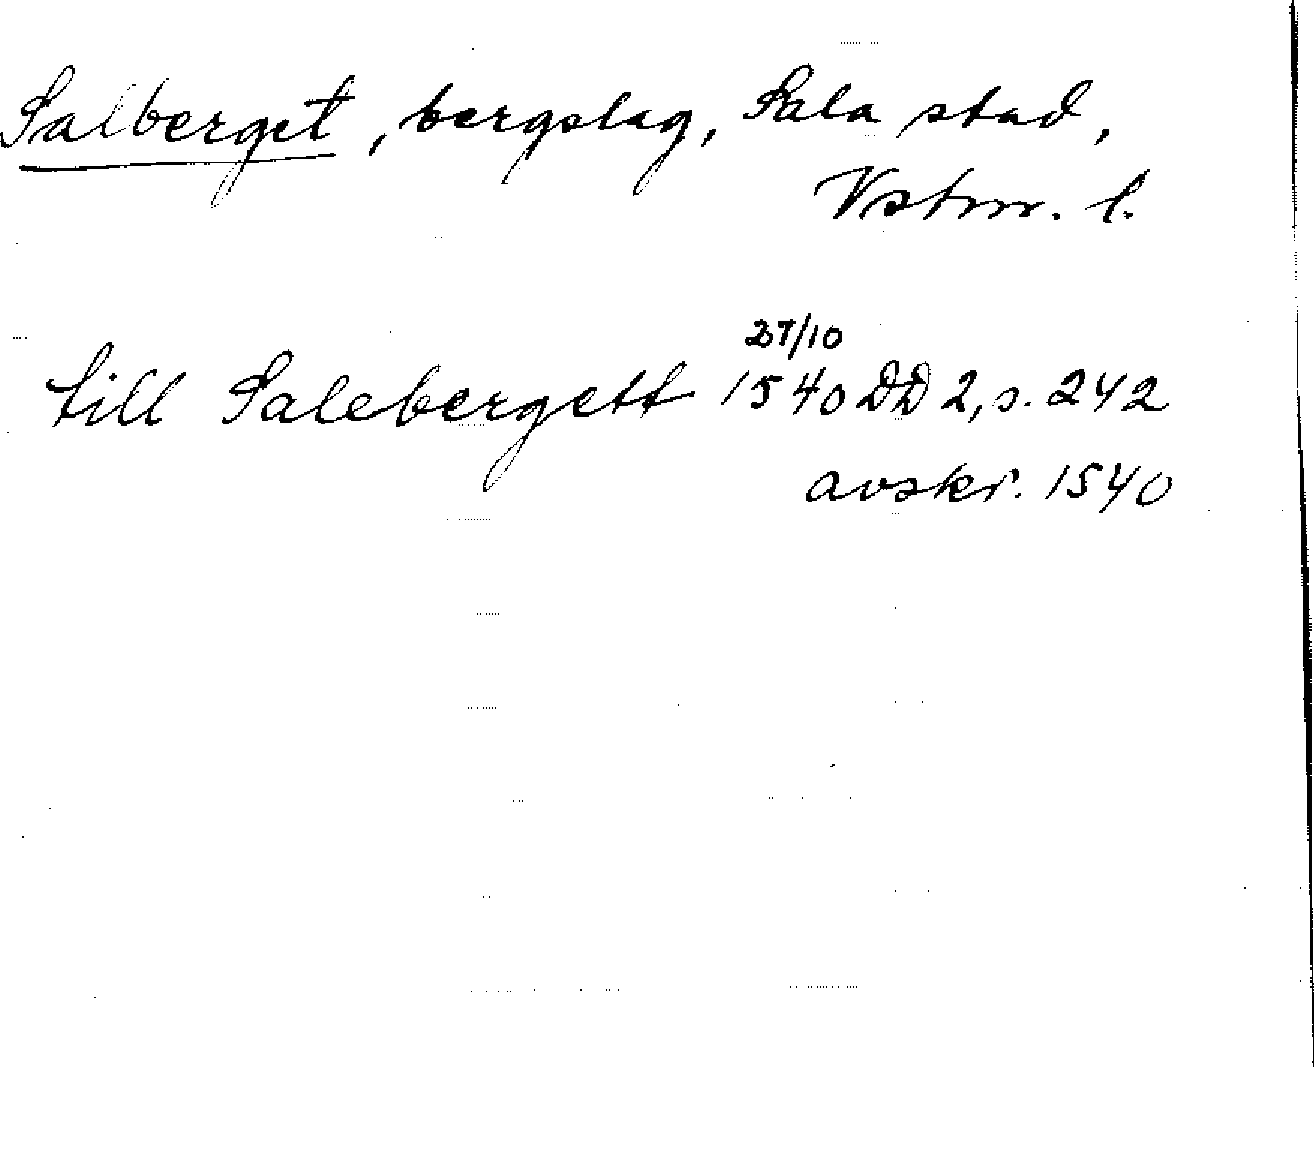 Salberget, bergslag, Sala stad,
Vstm. l.
27/10
till Salebergett 1540 DD 2, s. 242
avskr. 1540